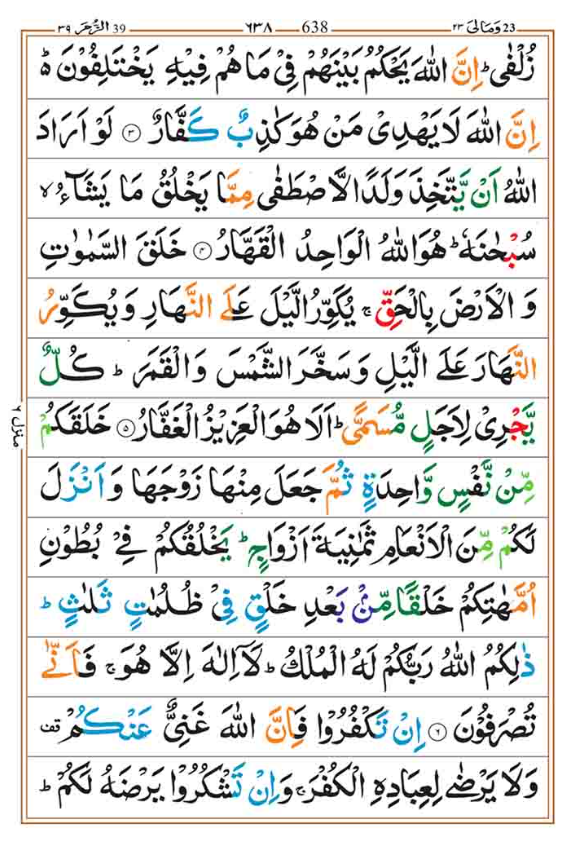 ٣٩ الزمر 39 ٦٣٨ 638 ومالى ٢٣ 23
زُلْفٰى ؕ اِنَّ اللّٰهَ يَحْكُمُ بَيْنَهُمْ فِىْ مَا هُمْ فِيْهِ يَخْتَلِفُوْنَ ؕ
اِنَّ اللّٰهَ لَا يَهْدِىْ مَنْ هُوَ كٰذِبٌ كَفَّارٌ ﴿۳﴾ لَوْ اَرَادَ
اللّٰهُ اَنْ يَّتَّخِذَ وَلَدًا لَّاصْطَفٰى مِمَّا يَخْلُقُ مَا يَشَآءُ ۙ
سُبْحٰنَهٗ ؕ هُوَ اللّٰهُ الْوَاحِدُ الْقَهَّارُ ﴿۴﴾ خَلَقَ السَّمٰوٰتِ
وَ الْاَرْضَ بِالْحَقِّ ۚ يُكَوِّرُ الَّيْلَ عَلَى النَّهَارِ وَيُكَوِّرُ
النَّهَارَ عَلَى الَّيْلِ وَسَخَّرَ الشَّمْسَ وَالْقَمَرَ ؕ كُلٌّ
يَّجْرِىْ لِاَجَلٍ مُّسَمًّى ؕ اَلَا هُوَ الْعَزِيْزُ الْغَفَّارُ ﴿۵﴾ خَلَقَكُمْ
مِّنْ نَّفْسٍ وَّاحِدَةٍ ثُمَّ جَعَلَ مِنْهَا زَوْجَهَا وَاَنْزَلَ
لَكُمْ مِّنَ الْاَنْعَامِ ثَمٰنِيَةَ اَزْوَاجٍ ؕ يَخْلُقُكُمْ فِىْ بُطُوْنِ
اُمَّهٰتِكُمْ خَلْقًا مِّنْۢ بَعْدِ خَلْقٍ فِىْ ظُلُمٰتٍ ثَلٰثٍ ؕ
ذٰلِكُمُ اللّٰهُ رَبُّكُمْ لَهُ الْمُلْكُ ؕ لَاۤ اِلٰهَ اِلَّا هُوَ ۚ فَاَنّٰى
تُصْرَفُوْنَ ﴿۶﴾ اِنْ تَكْفُرُوْا فَاِنَّ اللّٰهَ غَنِىٌّ عَنْكُمْ قف
وَلَا يَرْضٰى لِعِبَادِهِ الْكُفْرَ ۚ وَاِنْ تَشْكُرُوْا يَرْضَهُ لَكُمْ ؕ
منزل ٦